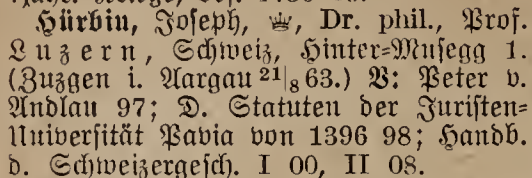 Hürbin, Joseph, ♕, Dr. phil., Prof.
Luzern, Schweiz, Hinter=Musegg 1.
(Zuzgen i. Aargau 21|8 63.) V: Peter v.
Andlau 97; D. Statuten der Juristen=
Universität Pavia von 1396 98; Handb.
d. Schweizergesch. I 00, II 08.